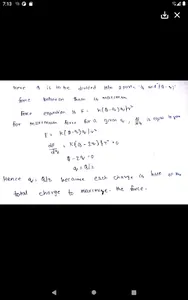 7:13
since q is to be divided into 2 parts
force between them is maximum
Force equation is F = k(Q-q)q/r²
for maximum force for a given r, is equal to zero
F = k(Q-q)q/r²
Q-2q=0
q=Q/2
Hence q=Q/2 because each charge is half of the
total charge to maximize the force.